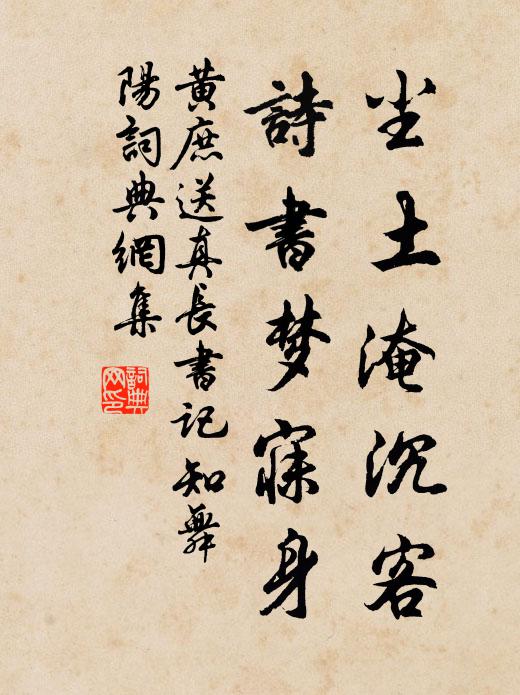 尘土淹沉客
詩書梦寐身
黃庶送真長書記知舞
陽詞典網集
詞典
网印